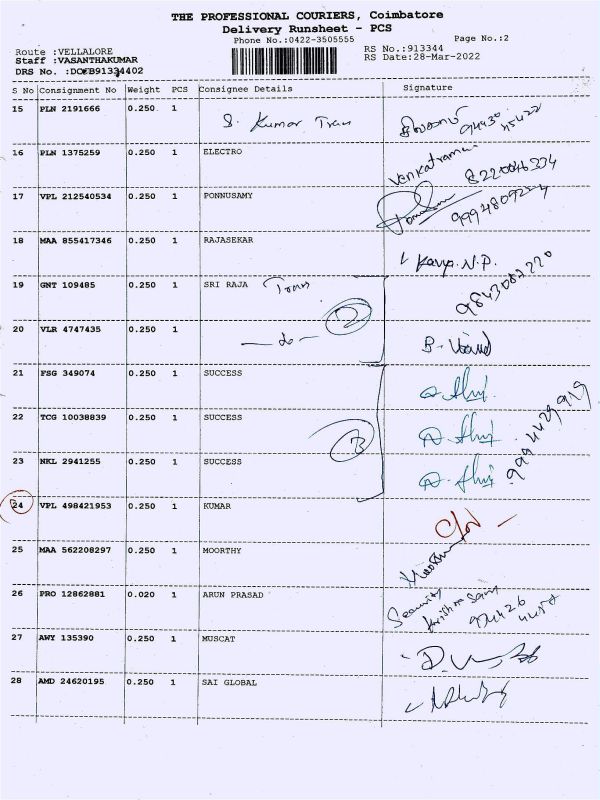 THE PROFESSIONAL COURIERS, Coimbatore
Delivery Runsheet - PCS
Phone No.:0422-3505555 Page No.:2
Route :VELLALORE RS No.:913344
Staff :VASANTHAKUMAR RS Date:28-Mar-2022
DRS No. :
S No Consignment No Weight PCS Consignee Details Signature
15 PLN 2191666 0.250 1 S. Kumar Tran
16 PLN 1375259 0.250 1 ELECTRO Venkatraman
17 VPL 212540534 0.250 1 PONNUSAMY
18 MAA 855417346 0.250 1 RAJASEKAR Kavya. N.P.
19 GNT 109485 0.250 1 SRI RAJA Tran 2 9843082220
20 VLR 4747435 0.250 1 — do — B.
21 FSG 349074 0.250 1 SUCCESS
22 TCG 10038839 0.250 1 SUCCESS 3
23 NKL 2941255 0.250 1 SUCCESS
24 VPL 498421953 0.250 1 KUMAR
25 MAA 562208297 0.250 1 MOORTHY
26 PRO 12862881 0.020 1 ARUN PRASAD Security
27 AWY 135390 0.250 1 MUSCAT
28 AMD 24620195 0.250 1 SAI GLOBAL